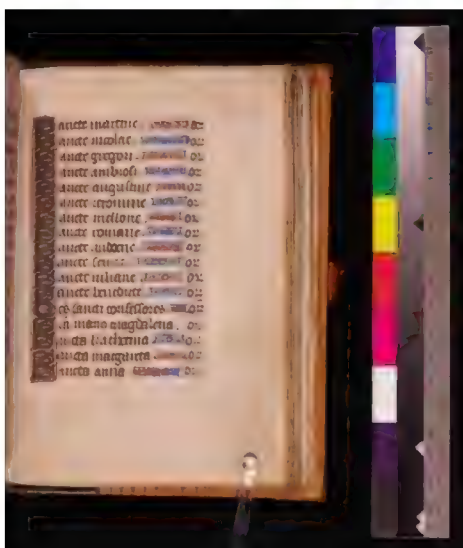 ancte martine . or
ancte nicolae or
ancte gregori or
ancte ambrosi or
ancte augustine or
ancte ieronime or
ancte mellone . or
ancte romane . or
ancte audoene or
ancte or
ancte iuliane . or
ancte benedicte or
es sancti confessores or
ca maria magdalena . or
ancta katherina or
ancta margareta or
ancta anna or